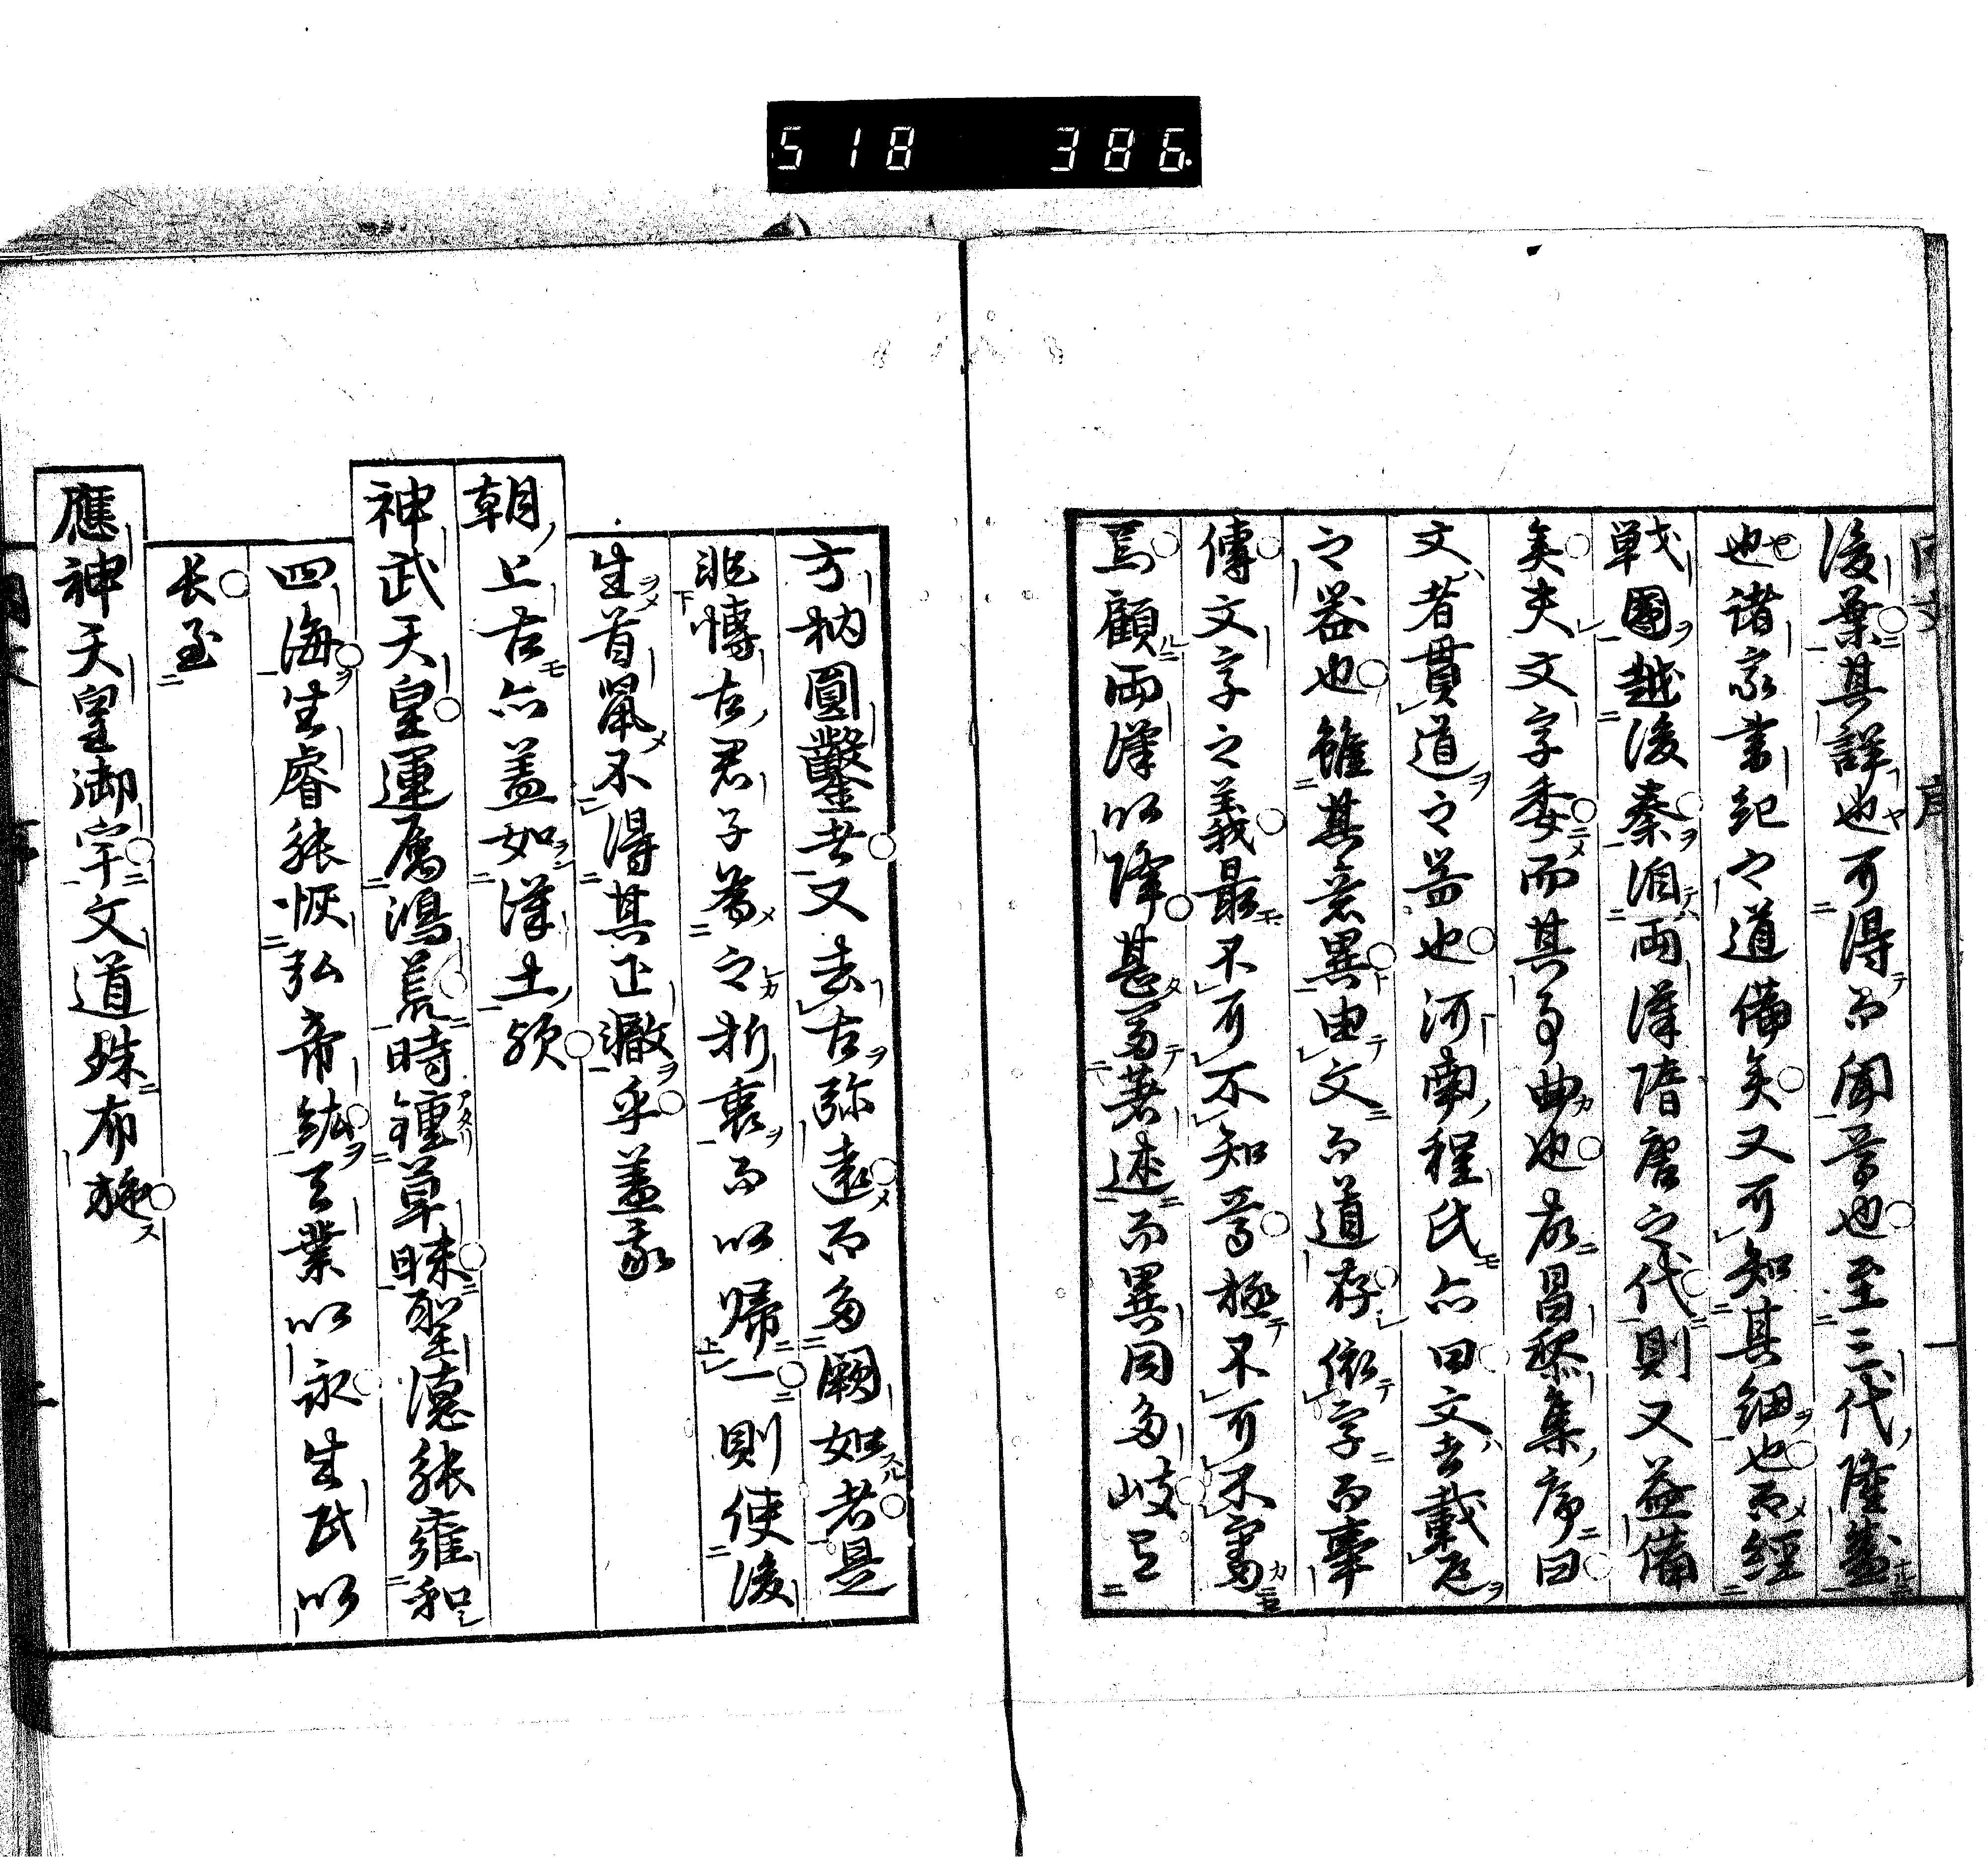 518 386
後葉其詳也可得而聞焉也至三代隆盛
也諸家書紀之道備矣又可知其細也而經
戰國越後秦洎兩漢隋唐之代則又益備
矣夫文字委而其事曲也故昌黎集序曰
文者貫道之器也河南程氏亦曰文者載道
之器也雖其意異由文而道存依字而事
傳文字之義最不可不知焉極不可不審
焉顧兩漢以降甚多著述而異同多岐有
方枘圓鑿者又去古弥遠而多闕如者是
非博古君子為之折衷而以歸一則使後
生首鼠不得其正轍乎蓋我
朝上古亦蓋如漢土然
神武天皇運屬鴻荒時鍾草昧聖德能雍和
四海生睿能恢弘帝紘天業以永生民以
長至
應神天皇御宇文道殊布施